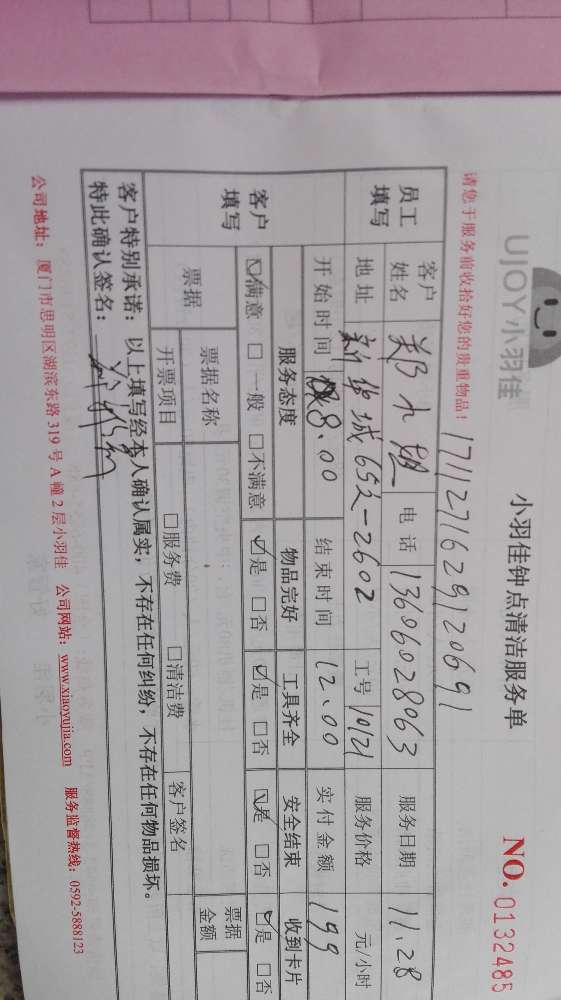 UJOY小羽佳
小羽佳钟点清洁服务单
NO. 0132485
请您于服务前收拾好您的贵重物品！
1711271629120691
员工填写
客户姓名 郑小姐 电话 13606028063 服务日期 11.28
地址 新华城65之-2602 工号 10121 服务价格 元/小时
开始时间 8.00 结束时间 12.00 实付金额 199
客户填写
服务态度 物品完好 工具齐全 安全结束 收到卡片
☑满意 □一般 □不满意 ☑是 □否 ☑是 □否 ☑是 □否 ☑是 □否
票据 票据名称 票据金额
开票项目 □服务费 □清洁费 客户签名
客户特别承诺：以上填写经本人确认属实，不存在任何纠纷，不存在任何物品损坏。
特此确认签名：
公司地址：厦门市思明区湖滨东路319号A幢2层小羽佳 公司网站：www.xiaoyujia.com 服务监督热线：0592-5888123